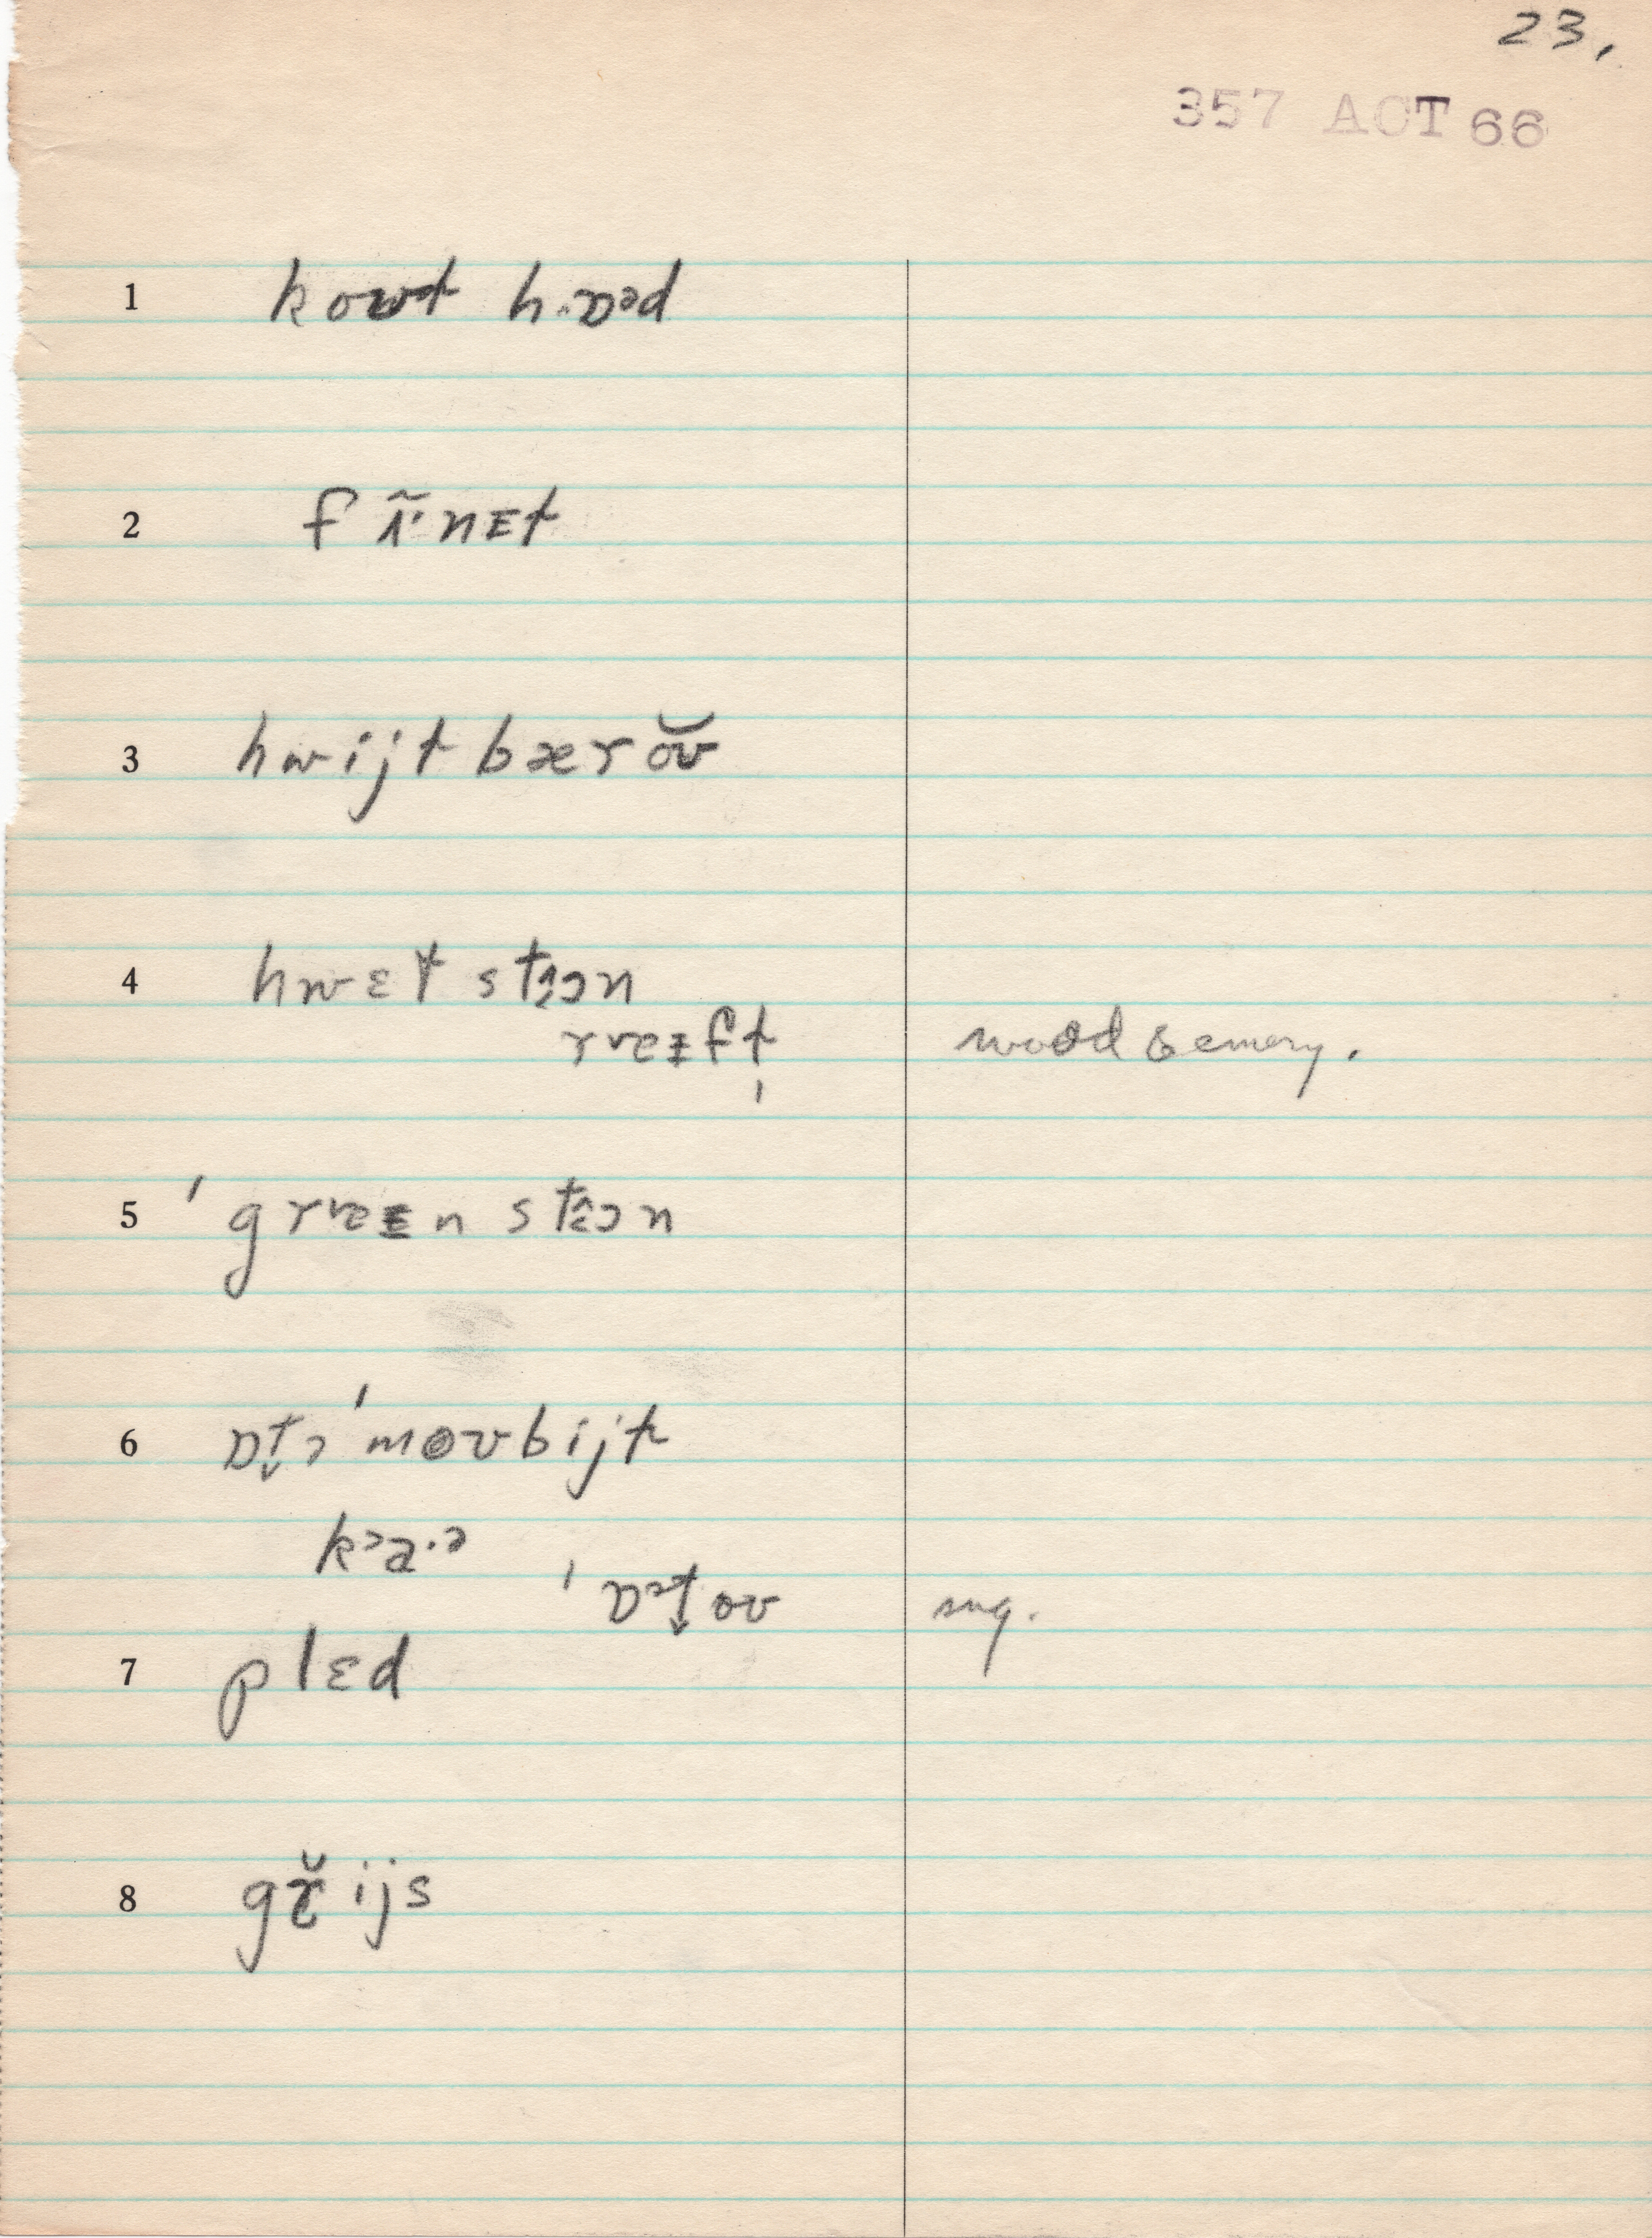 23.
357 ACT 66
1 kowt h.ɒəd
2 fĩ·nᴇt
3 hwijt bærŏʊ
4 hwɛt stɜɔn
rvɐᵻft wood & emery.
5 ˈgrvɐᵻn stɜɔn
6 ɒt̬ə ˈmoʊbijt
kɔa·ə
ˈɒət̬oʊ sug.
7 plɛd
8 gr̆ijs